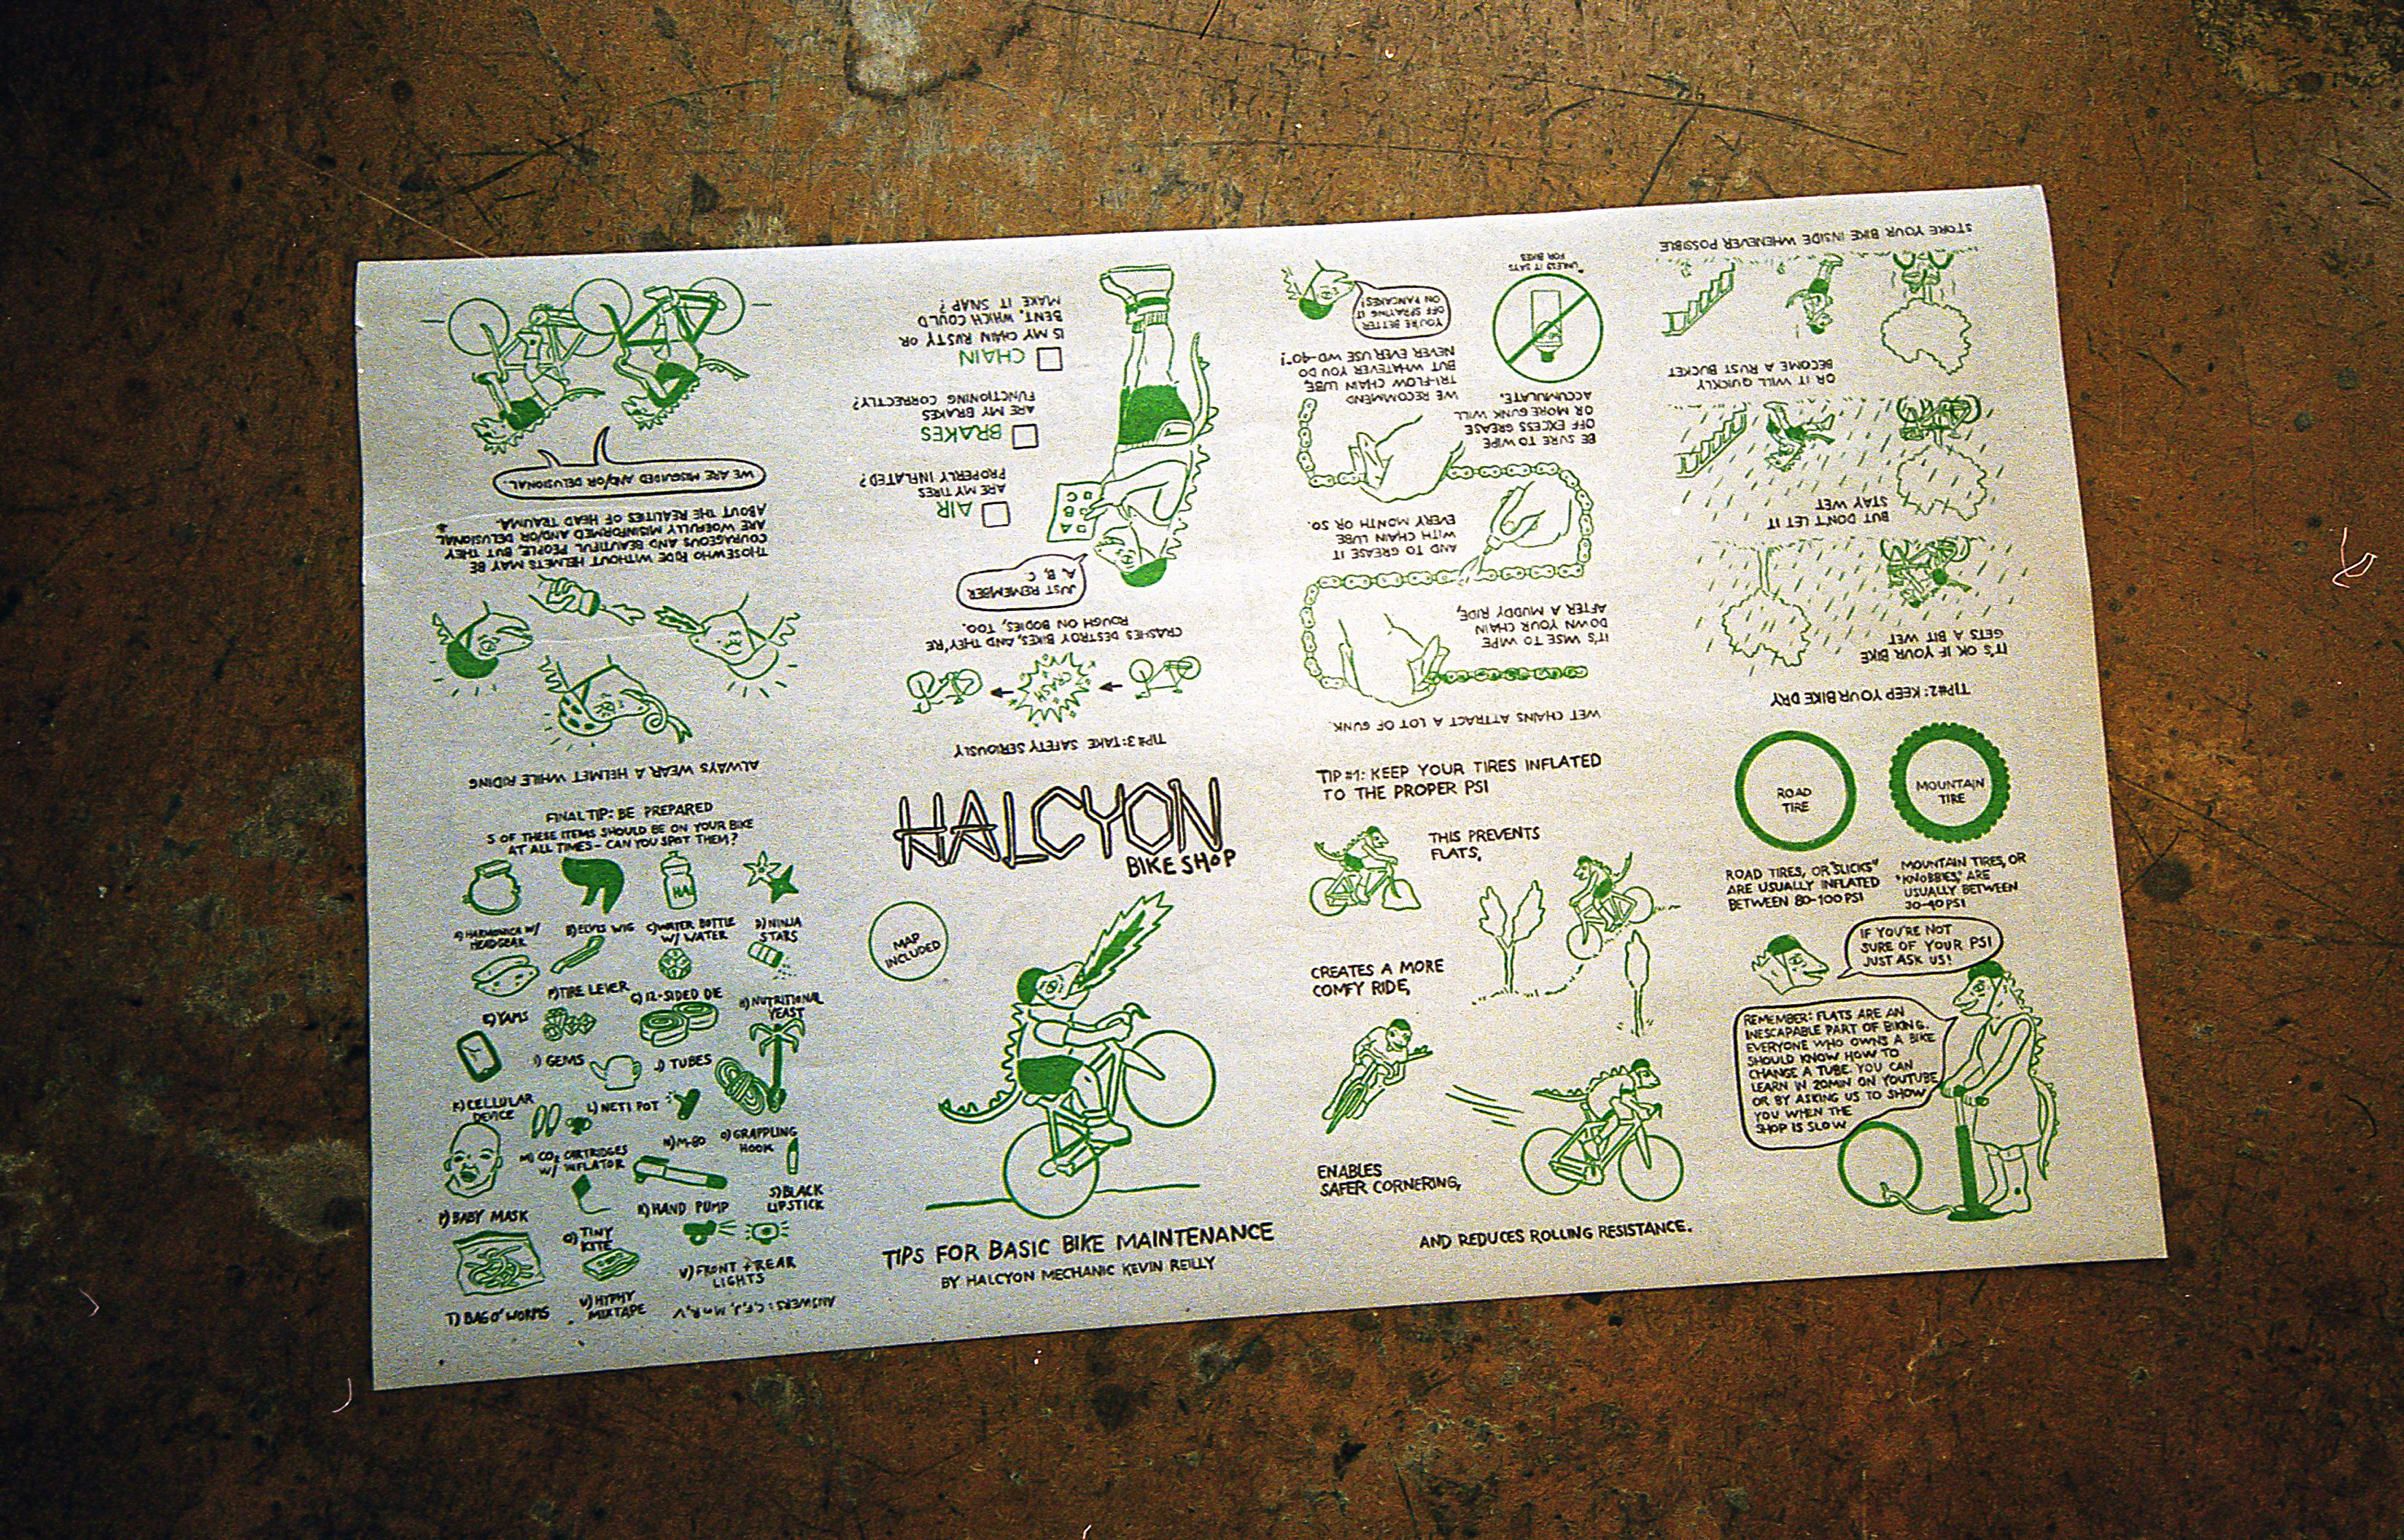 HALCYON
BIKE SHOP
MAP
INCLUDED
TIPS FOR BASIC BIKE MAINTENANCE
BY HALCYON MECHANIC KEVIN REILLY
TIP #1: KEEP YOUR TIRES INFLATED
TO THE PROPER PSI
THIS PREVENTS
FLATS,
CREATES A MORE
COMFY RIDE,
ENABLES
SAFER CORNERING,
AND REDUCES ROLLING RESISTANCE.
ROAD
TIRE
MOUNTAIN
TIRE
ROAD TIRES, OR "SLICKS"
ARE USUALLY INFLATED
BETWEEN 80-100 PSI
MOUNTAIN TIRES, OR
"KNOBBIES," ARE
USUALLY BETWEEN
30-40 PSI
IF YOU'RE NOT
SURE OF YOUR PSI
JUST ASK US!
REMEMBER: FLATS ARE AN
INESCAPABLE PART OF BIKING.
EVERYONE WHO OWNS A BIKE
SHOULD KNOW HOW TO
CHANGE A TUBE. YOU CAN
LEARN IN 20MIN ON YOUTUBE
OR BY ASKING US TO SHOW
YOU WHEN THE
SHOP IS SLOW
TIP#2: KEEP YOUR BIKE DRY
IT'S OK IF YOUR BIKE
GETS A BIT WET
BUT DON'T LET IT
STAY WET
OR IT WILL QUICKLY
BECOME A RUST BUCKET
STORE YOUR BIKE INSIDE WHENEVER POSSIBLE
WET CHAINS ATTRACT A LOT OF GUNK.
IT'S WISE TO WIPE
DOWN YOUR CHAIN
AFTER A MUDDY RIDE,
AND TO GREASE IT
WITH CHAIN LUBE
EVERY MONTH OR SO.
BE SURE TO WIPE
OFF EXCESS GREASE
OR MORE GUNK WILL
ACCUMULATE.
WE RECOMMEND
TRI-FLOW CHAIN LUBE,
BUT WHATEVER YOU DO
NEVER EVER USE WD-40*!
YOU'RE BETTER
OFF SPRAYING IT
ON PANCAKES!
*UNLESS IT SAYS
FOR BIKES
TIP#3: TAKE SAFETY SERIOUSLY
CRASH
CRASHES DESTROY BIKES, AND THEY'RE
ROUGH ON BODIES, TOO.
JUST REMEMBER
A, B, C
A
B
C
AIR
ARE MY TIRES
PROPERLY INFLATED?
BRAKES
ARE MY BRAKES
FUNCTIONING CORRECTLY?
CHAIN
IS MY CHAIN RUSTY OR
BENT, WHICH COULD
MAKE IT SNAP?
ALWAYS WEAR A HELMET WHILE RIDING
THOSE WHO RIDE WITHOUT HELMETS MAY BE
COURAGEOUS AND BEAUTIFUL PEOPLE, BUT THEY
ARE WOEFULLY MISINFORMED AND/OR DELUSIONAL
ABOUT THE REALITIES OF HEAD TRAUMA.
WE ARE MISGUIDED AND/OR DELUSIONAL.
FINAL TIP: BE PREPARED
5 OF THESE ITEMS SHOULD BE ON YOUR BIKE
AT ALL TIMES - CAN YOU SPOT THEM?
A) HARMONICA W/
HEADGEAR
B) ELVIS WIG
C) WATER BOTTLE
W/ WATER
D) NINJA
STARS
E) YAMS
F) TIRE LEVER
G) 12-SIDED DIE
H) NUTRITIONAL
YEAST
I) GEMS
J) TUBES
K) CELLULAR
DEVICE
L) NETI POT
M) CO2 CARTRIDGES
W/ INFLATOR
N) M-80
O) GRAPPLING
HOOK
P) BABY MASK
Q) TINY
KITE
R) HAND PUMP
S) BLACK
LIPSTICK
T) BAG O' WORMS
U) HYPHY
MIXTAPE
V) FRONT + REAR
LIGHTS
ANSWERS: C, F, J, M or R, V